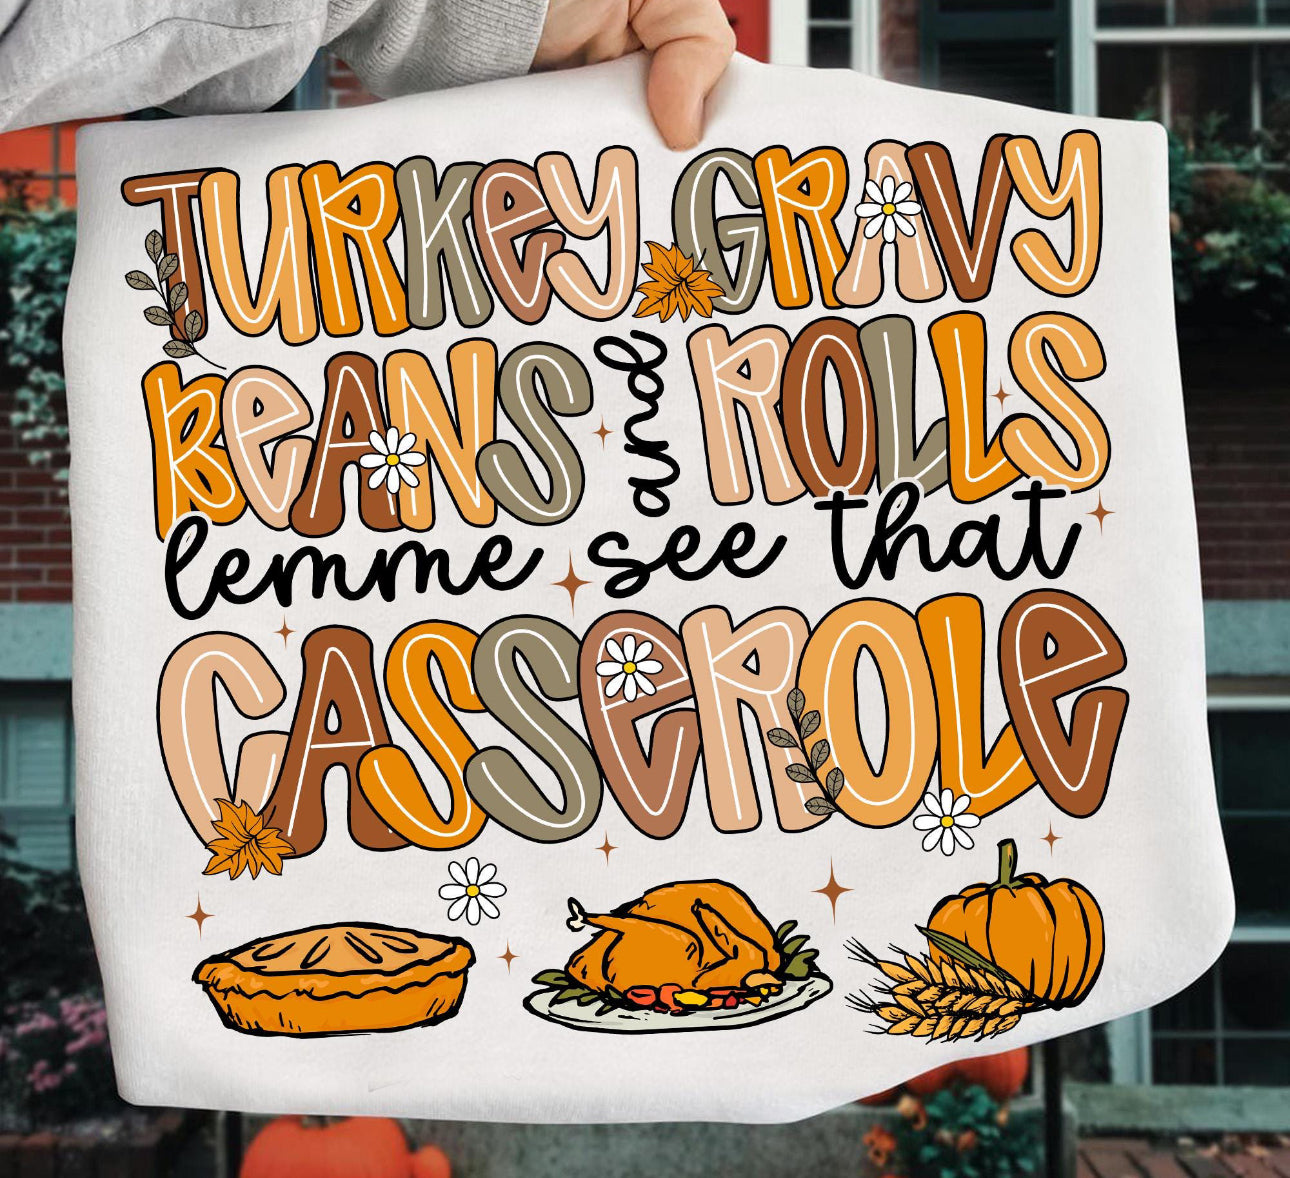 TURKEY GRAVY
BEANS and ROLLS
lemme see that
CASSEROLE